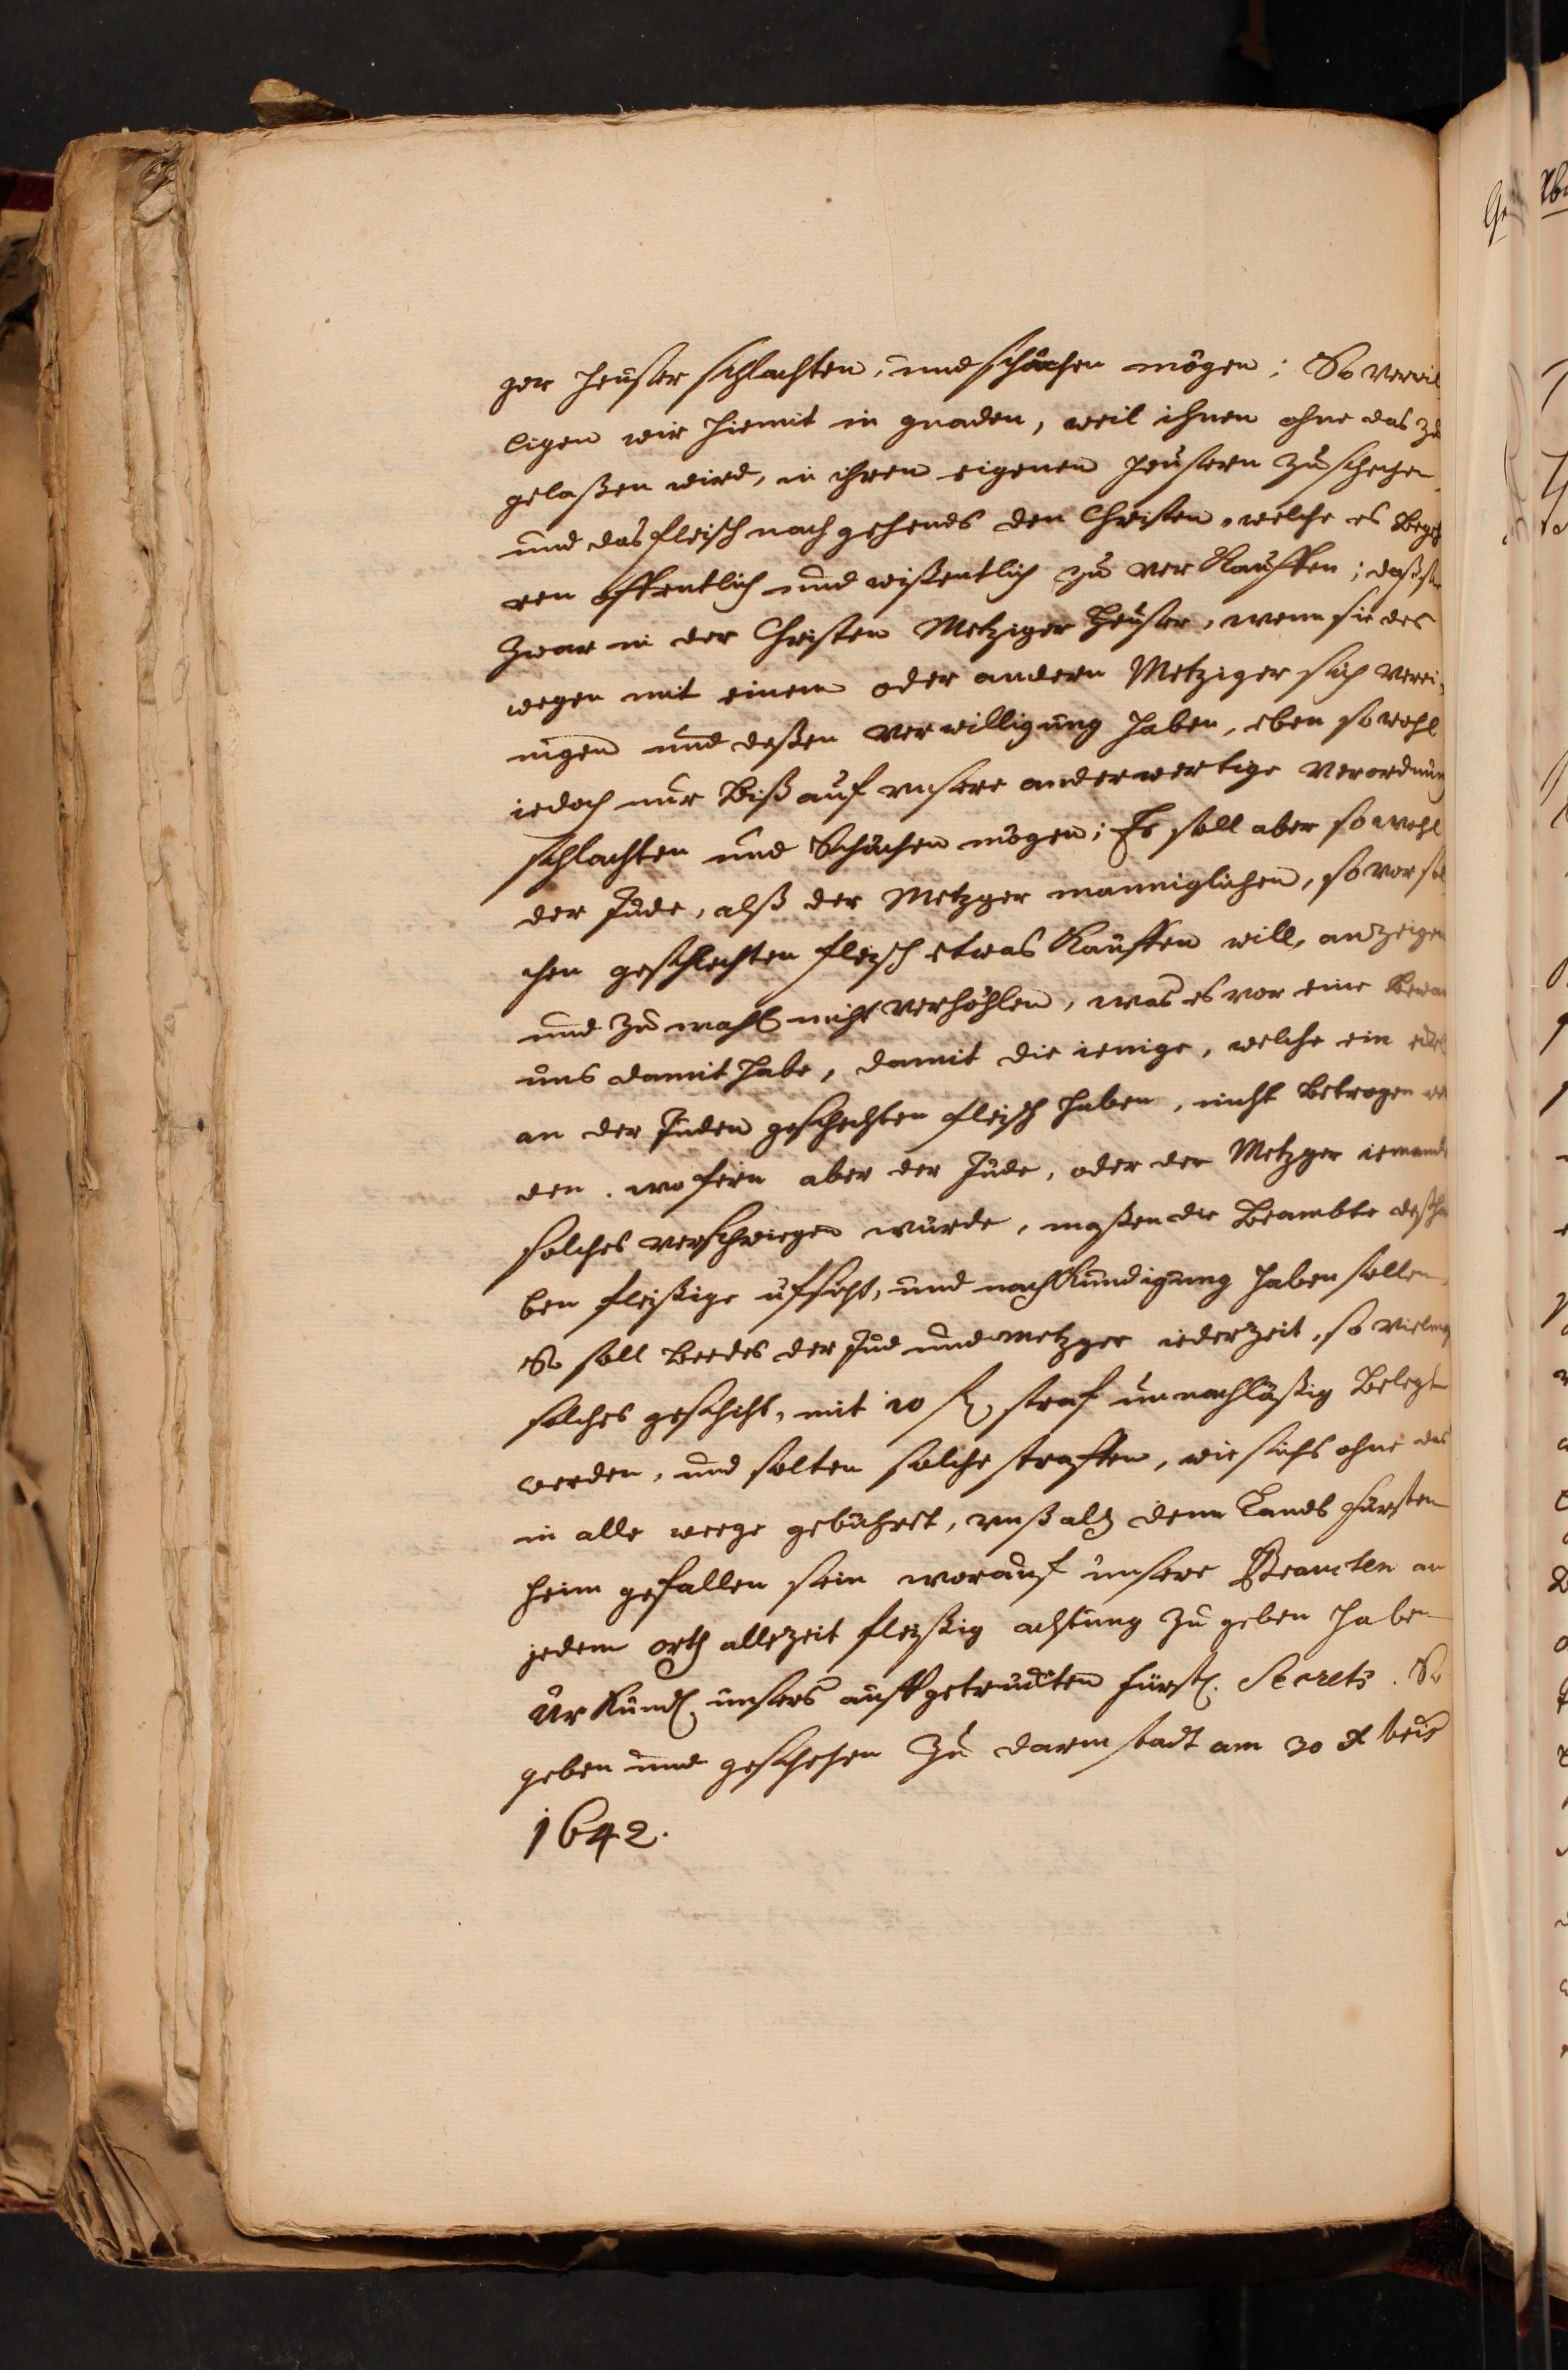 ger Heußer schlachten, und schächen mögen; So verwil
ligen wir hiemit in gnaden, weil ihnen ohne das zu
gelaßen wird, in ihren eigenen Heusern zu schechen
und das fleisch nachgehends den Christen, welche es begeh
ren öffentlich und wißentlich zu verkauffen; daß sie
zwar in der Christen Metziger Heußer, wenn sie des
wegen mit einem oder andern Metziger sich verei,
nigen und deßen verwilligung haben, eben sowohl
iedoch nur biß auf vnsere anderwertige verordnung
schlachten und Schächen mögen; Es soll aber sowohl
der Jude, alß der Metzger manniglichen, so vor sol
chen geschechten fleisch etwas Kauffen will, anzeigen
und zu mahl nicht verhöhlen, was es vor eine bewan
nus damit habe, damit die ienige, welche ein eckel
an der Juden geschechten fleisch haben, nicht betrogen wer
den. wo fern aber der Jude, oder der Metzger iemands
solches verschwiegen wurde, maßen die Beambte deßhal
ben fleißige ufsicht, und nachkundigung haben sollen,
So soll beedes der Jud und Metzger iederzeit, so vielmahl
solches geschicht, mit 20 fl straf unnachläßig belegt
werden, und solten solche straffen, wie sichs ohne das
in alle weege gebühret, vnß alß dem Lands fürsten
heim gefallen sein worauf unsere Beamten an
jedem orth allezeit fleißig achtung zu geben haben
Urkundl. unsers aufgetruckten fürstl. Secrets. Ge
geben und geschehen zu Darmstadt am 30 Xbris
1642.